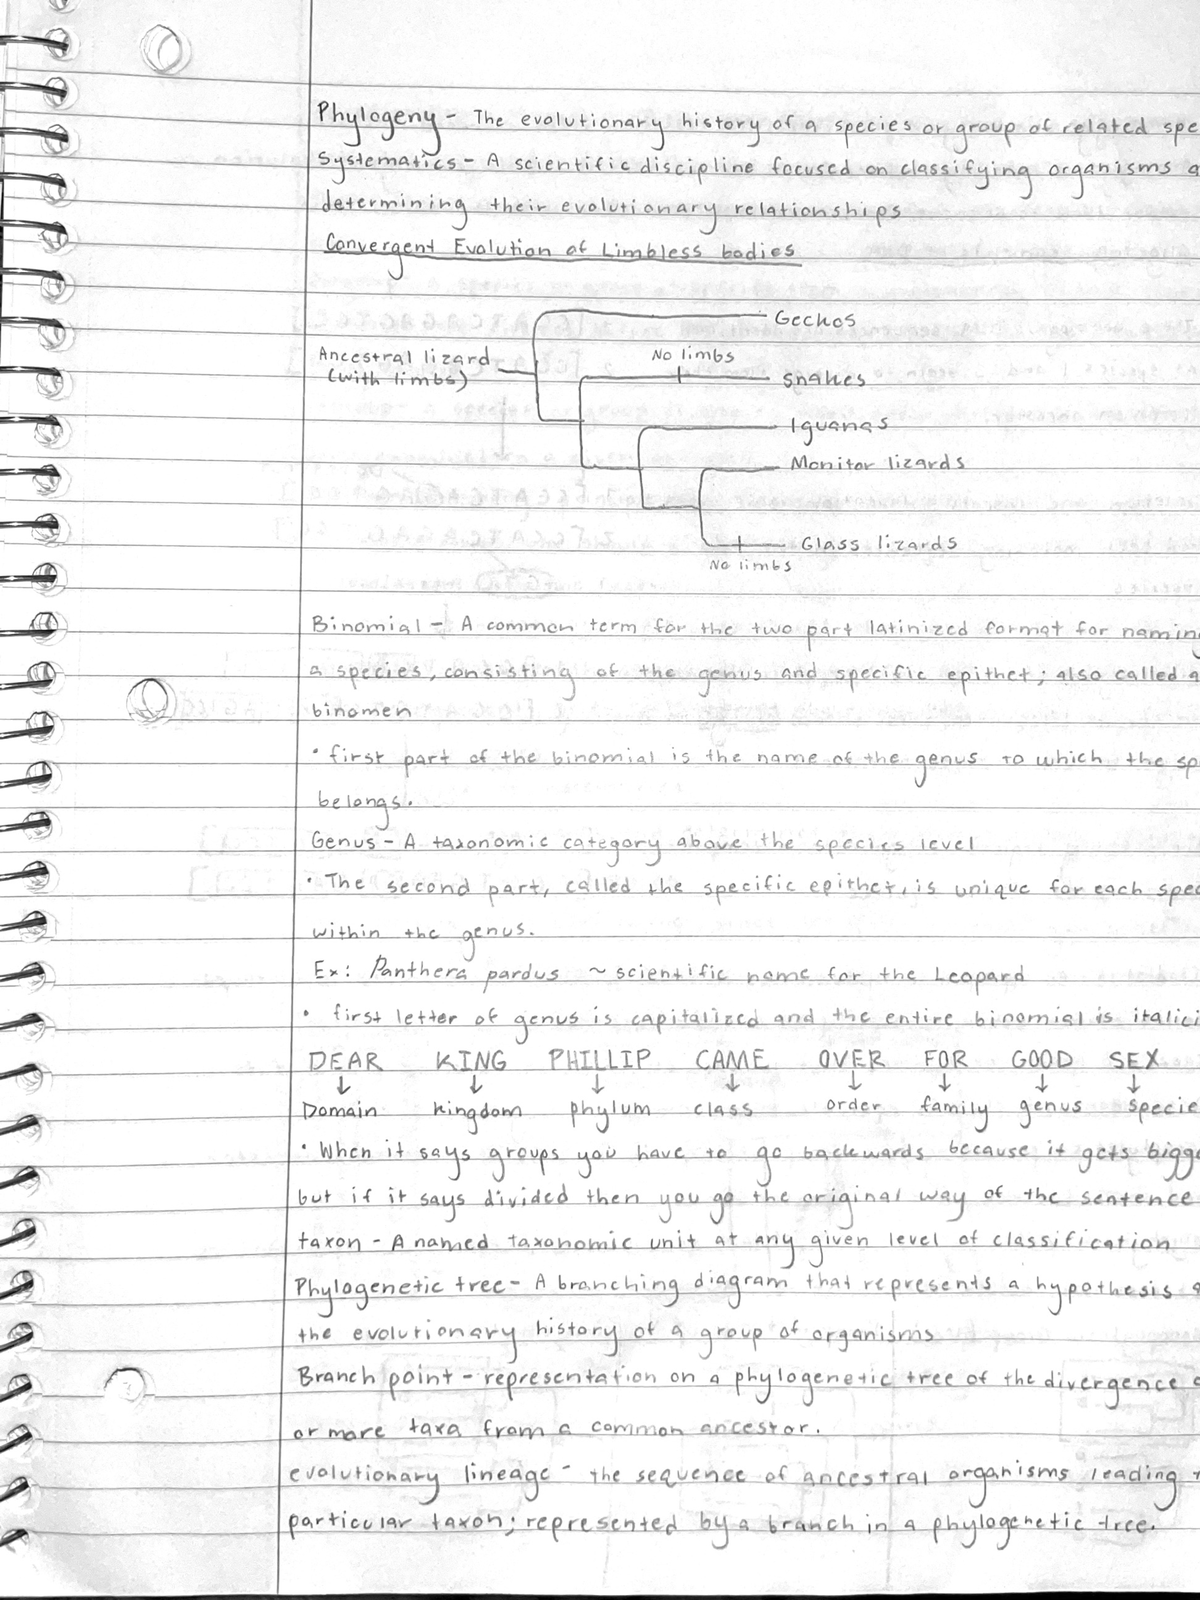 Phylogeny - The evolutionary history of a species or group of related spe
Systematics - A scientific discipline focused on classifying organisms a
determining their evolutionary relationships
Convergent Evolution of Limbless bodies
Geckos
Ancestral lizard
(with limbs)
No limbs
snakes
Iguanas
Monitor lizards
Glass lizards
No limbs
Binomial - A common term for the two part latinized format for naming
a species, consisting of the genus and specific epithet; also called a
binomen
• first part of the binomial is the name of the genus to which the sp
belongs.
Genus - A taxonomic category above the species level
• The second part, called the specific epithet, is unique for each spec
within the genus.
Ex: Panthera pardus ~ scientific name for the Leopard
• first letter of genus is capitalized and the entire binomial is italici
DEAR KING PHILLIP CAME OVER FOR GOOD SEX
↓ ↓ ↓ ↓ ↓ ↓ ↓ ↓
Domain kingdom phylum class order family genus specie
• When it says groups you have to go backwards because it gets bigge
but if it says divided then you go the original way of the sentence
taxon - A named taxonomic unit at any given level of classification
Phylogenetic tree - A branching diagram that represents a hypothesis
the evolutionary history of a group of organisms
Branch point - representation on a phylogenetic tree of the divergence
or more taxa from a common ancestor.
evolutionary lineage - the sequence of ancestral organisms leading t
particular taxon; represented by a branch in a phylogenetic tree.